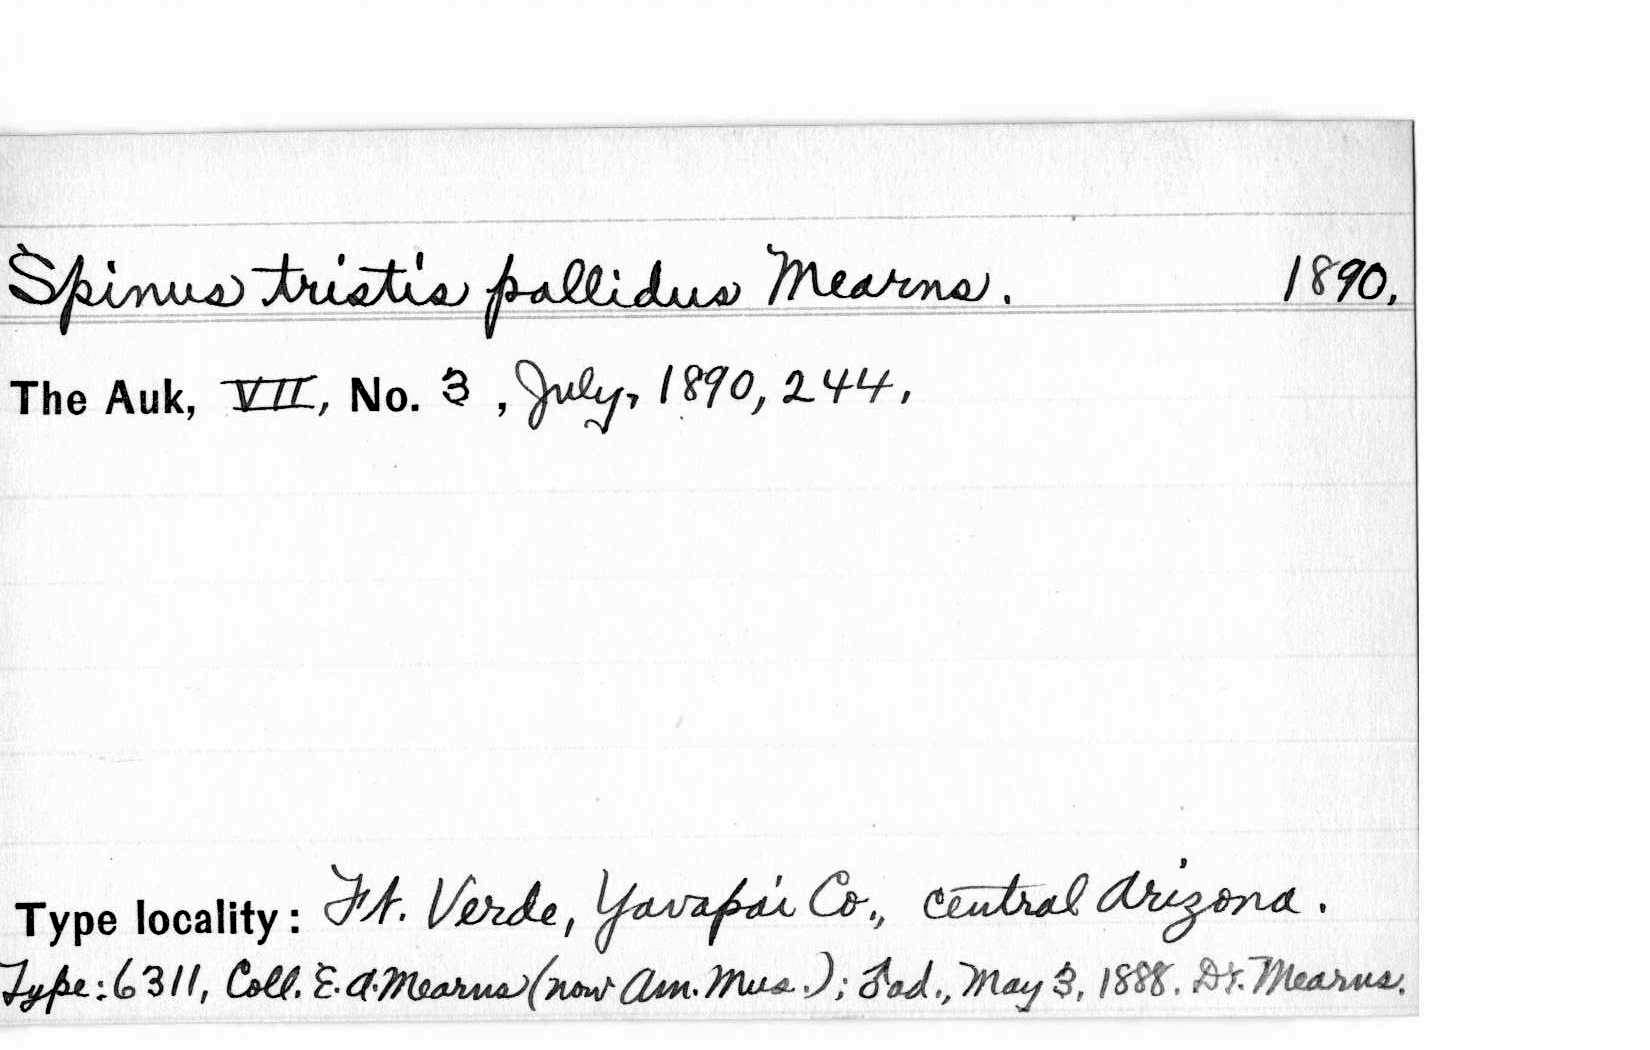 Spinus tristis pallidus Mearns. 1890.
The Auk, VII, No. 3, July, 1890, 244.
Type locality: Ft. Verde, Yavapai Co., central Arizona.
Type: 6311, Coll. E. A. Mearns (now Am. Mus.); ♂ad., May 3, 1888. Dr. Mearns.